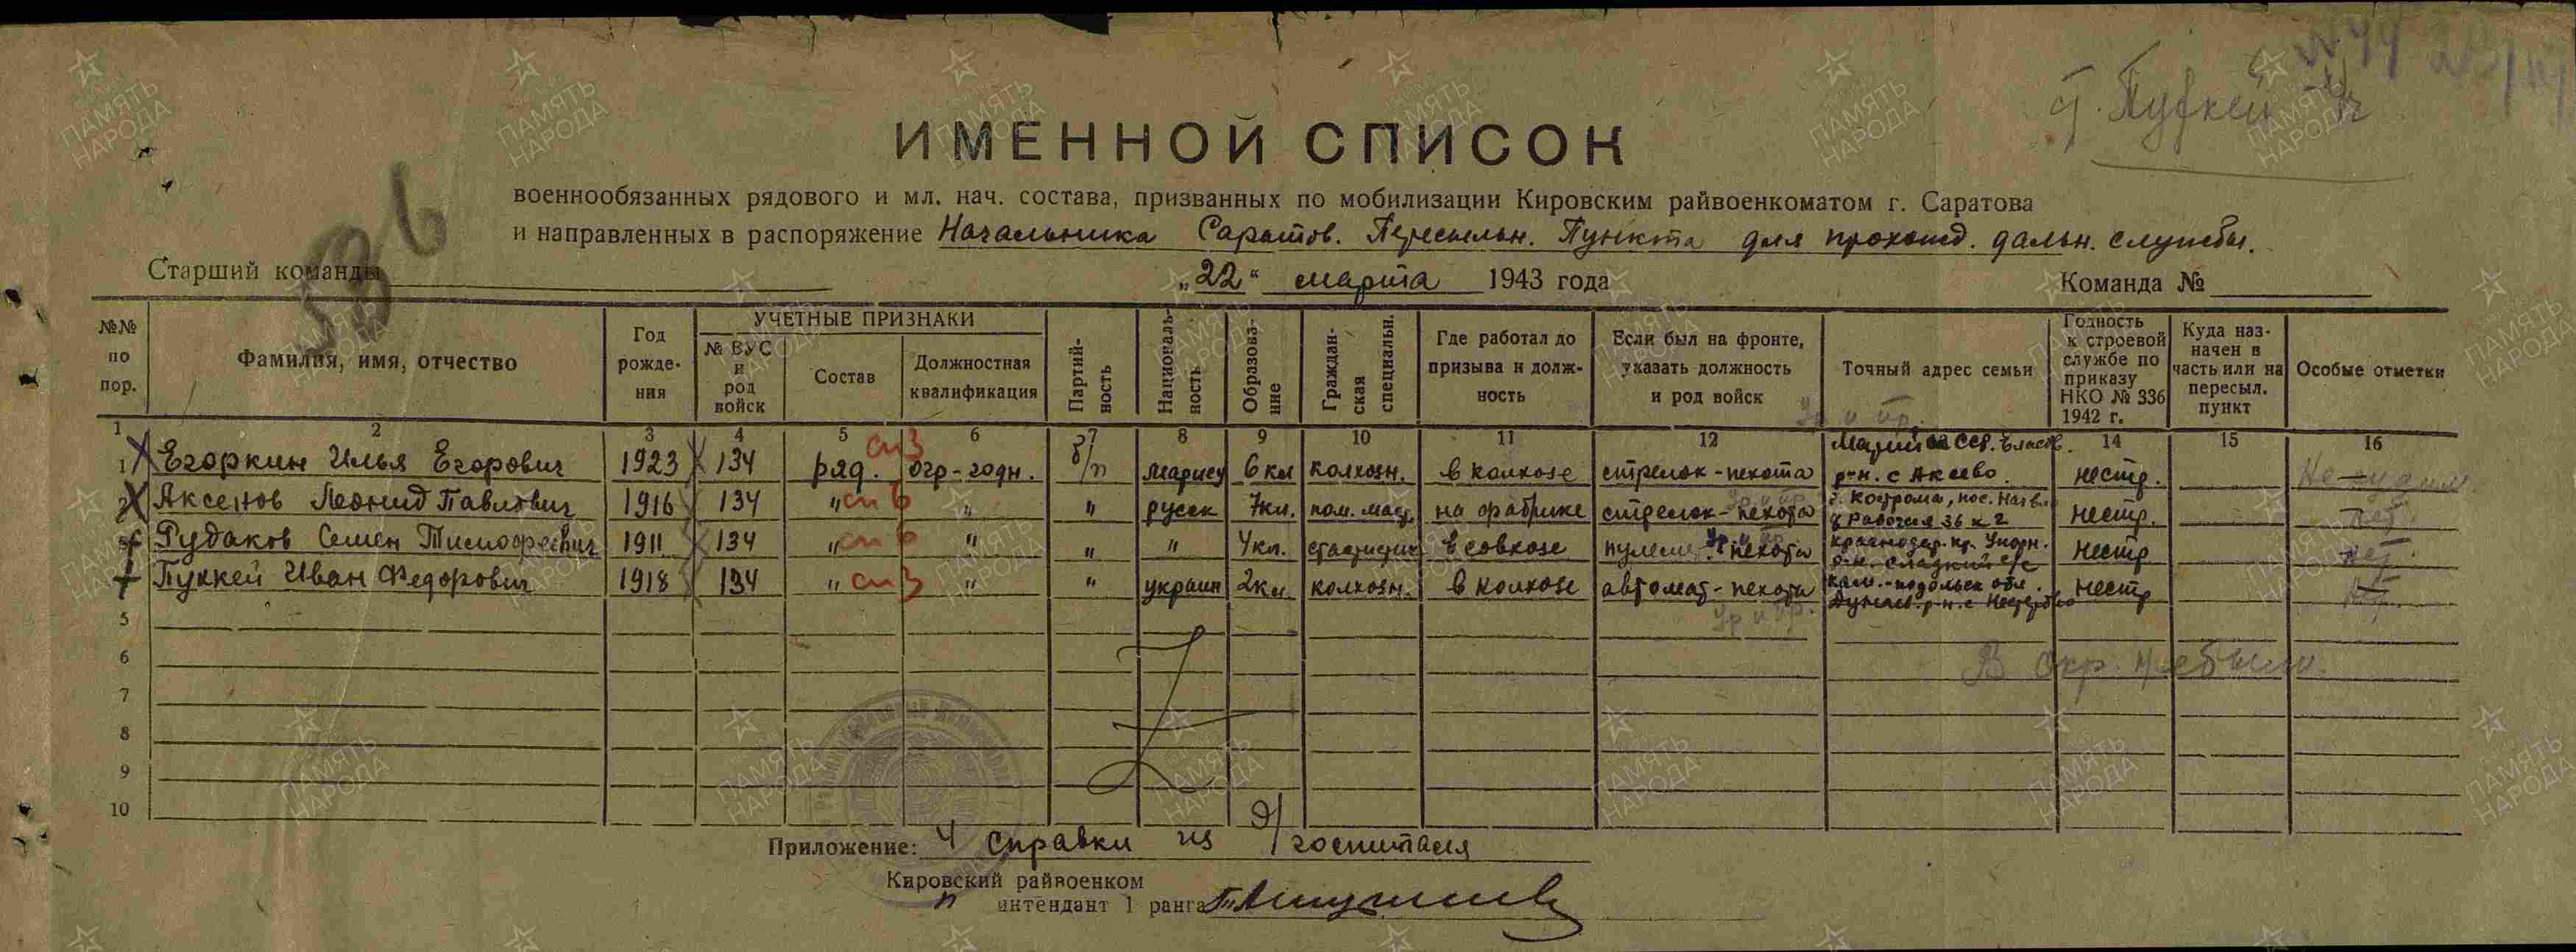 г. Пуккей
ИМЕННОЙ СПИСОК
военнообязанных рядового и мл. нач. состава, призванных по мобилизации Кировским райвоенкоматом г. Саратова
и направленных в распоряжение Начальника Саратов. Пересыльн. Пункта для прохожд. дальн. службы.
Старший команды „22“ марта 1943 года Команда №
№№ по пор. Фамилия, имя, отчество Год рожде- ния УЧЕТНЫЕ ПРИЗНАКИ № ВУС и род войск Состав Должностная квалификация Партий- ность Националь- ность Образова- ние Граждан- ская специальн. Где работал до призыва и долж- ность Если был на фронте, указать должность и род войск Точный адрес семьи Годность к строевой службе по приказу НКО № 336 1942 г. Куда наз- начен в часть или на пересыл. пункт Особые отметки
1 2 3 4 5 6 7 8 9 10 11 12 14 15 16
1 Егоркин Илья Егорович 1923 134 ряд. огр-годн. б/п мариец 6 кл колхозн. в колхозе стрелок-пехота р-н. с Аксево нестр.
2 Аксенов Леонид Павлович 1916 134 " " " русск 7кл. пом. маст. на фабрике стрелок-пехоты г. Кострома, пос. Рабочая 36 к 2 нестр. нет.
Рудаков Семен Тимофеевич 1911 134 " " " " 4кл. в совхозе пехоты Краснодар. кр. р-н. Сладкий с/с нестр нет.
Пуккей Иван Федорович 1918 134 " " " украин 2кл. колхозн. в колхозе автомат-пехоты Кам.-подольск обл. Дунаев. р-н. с нестр
5
6
7
8
9
10
Приложение: 4 справки из э/госпиталя
Кировский райвоенком
интендант 1 ранга
ПАМЯТЬ НАРОДА